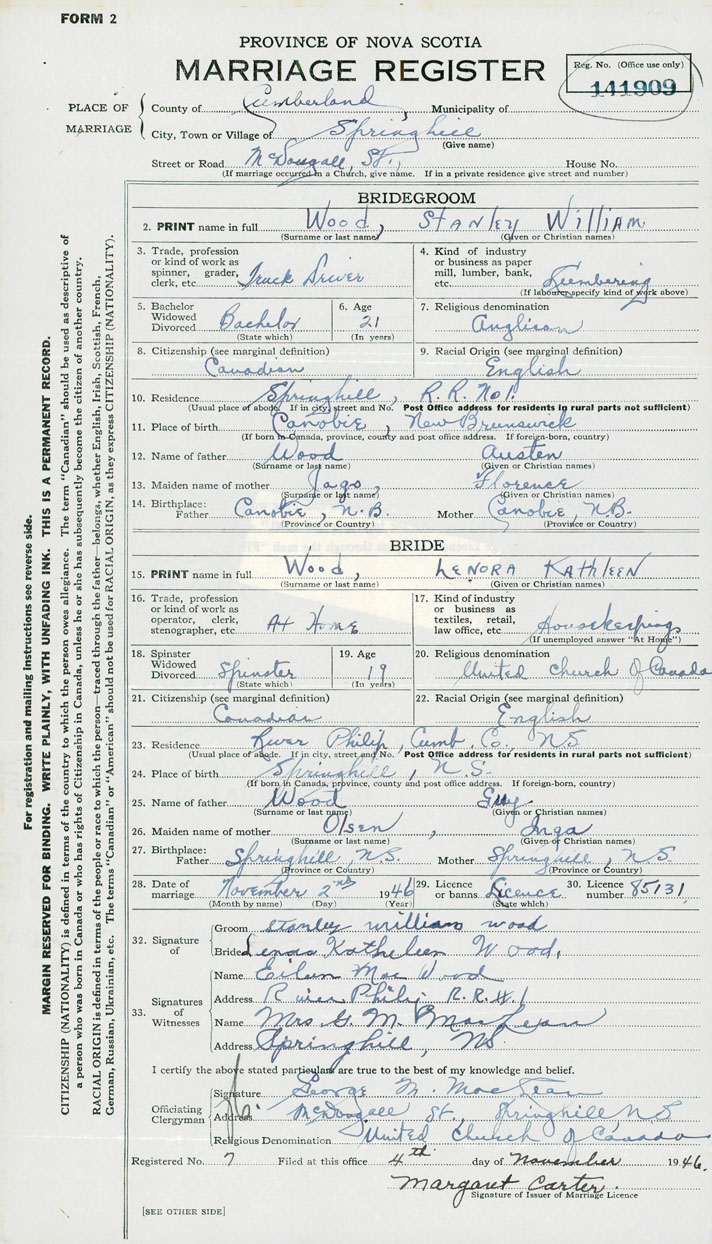 FORM 2
PROVINCE OF NOVA SCOTIA
MARRIAGE REGISTER
Reg. No. (Office use only)
141909
PLACE OF MARRIAGE
County of Cumberland, Municipality of
City, Town or Village of Springhill
(Give name)
Street or Road McDougall St., House No.
(If marriage occurred in a Church, give name. If in a private residence give street and number)
BRIDEGROOM
2. PRINT name in full Wood, STANLEY William
(Surname or last name) (Given or Christian names)
3. Trade, profession or kind of work as spinner, grader, clerk, etc. Truck Driver
4. Kind of industry or business as paper mill, lumber, bank, etc. Lumbering
(If labourer specify kind of work above)
5. Bachelor Widowed Divorced Bachelor
(State which)
6. Age 21
(In years)
7. Religious denomination
Anglican
8. Citizenship (see marginal definition)
Canadian
9. Racial Origin (see marginal definition)
English
10. Residence Springhill, R.R. No 1.
(Usual place of abode. If in city, street and No. Post Office address for residents in rural parts not sufficient)
11. Place of birth Canobie, New Brunswick
(If born in Canada, province, county and post office address. If foreign-born, country)
12. Name of father Wood Austen
(Surname or last name) (Given or Christian names)
13. Maiden name of mother Jago, Florence
(Surname or last name) (Given or Christian names)
14. Birthplace: Father Canobie, N.B. Mother Canobie N.B.
(Province or Country) (Province or Country)
BRIDE
15. PRINT name in full Wood, LENORA KATHLEEN
(Surname or last name) (Given or Christian names)
16. Trade, profession or kind of work as operator, clerk, stenographer, etc. At Home
17. Kind of industry or business as textiles, retail, law office, etc. Housekeeping
(If unemployed answer "At Home")
18. Spinster Widowed Divorced Spinster
(State which)
19. Age 19
(In years)
20. Religious denomination
United Church of Canada
21. Citizenship (see marginal definition)
Canadian
22. Racial Origin (see marginal definition)
English
23. Residence River Philip, Cumb. Co., N.S.
(Usual place of abode. If in city, street and No. Post Office address for residents in rural parts not sufficient)
24. Place of birth Springhill, N.S.
(If born in Canada, province, county and post office address. If foreign-born, country)
25. Name of father Wood Guy
(Surname or last name) (Given or Christian names)
26. Maiden name of mother Olsen, Inga
(Surname or last name) (Given or Christian names)
27. Birthplace: Father Springhill, N.S. Mother Springhill, N.S.
(Province or Country) (Province or Country)
28. Date of marriage November 2nd 1946
(Month by name) (Day) (Year)
29. Licence or banns Licence
(State which)
30. Licence number 85131
32. Signature of
Groom stanley william wood
Bride Lenora Kathleen Wood.
33. Signatures of Witnesses
Name Eileen Mae Wood
Address River Philip R.R. #1
Name Mrs G. M. MacLean
Address Springhill, NS
I certify the above stated particulars are true to the best of my knowledge and belief.
Officiating Clergyman
Signature George M. MacLean
Address McDougall St., Springhill, NS
Religious Denomination United Church of Canada
Registered No. 7 Filed at this office 4th day of November 1946.
Margaret Carter.
Signature of Issuer of Marriage Licence
[SEE OTHER SIDE]
For registration and mailing instructions see reverse side.
MARGIN RESERVED FOR BINDING. WRITE PLAINLY, WITH UNFADING INK. THIS IS A PERMANENT RECORD.
CITIZENSHIP (NATIONALITY) is defined in terms of the country to which the person owes allegiance. The term "Canadian" should be used as descriptive of
a person who was born in Canada or who has rights of Citizenship in Canada, unless he or she has subsequently become the citizen of another country.
RACIAL ORIGIN is defined in terms of the people or race to which the person—traced through the father—belongs, whether English, Irish, Scottish, French,
German, Russian, Ukrainian, etc. The terms "Canadian" or "American" should not be used for RACIAL ORIGIN, as they express CITIZENSHIP (NATIONALITY).